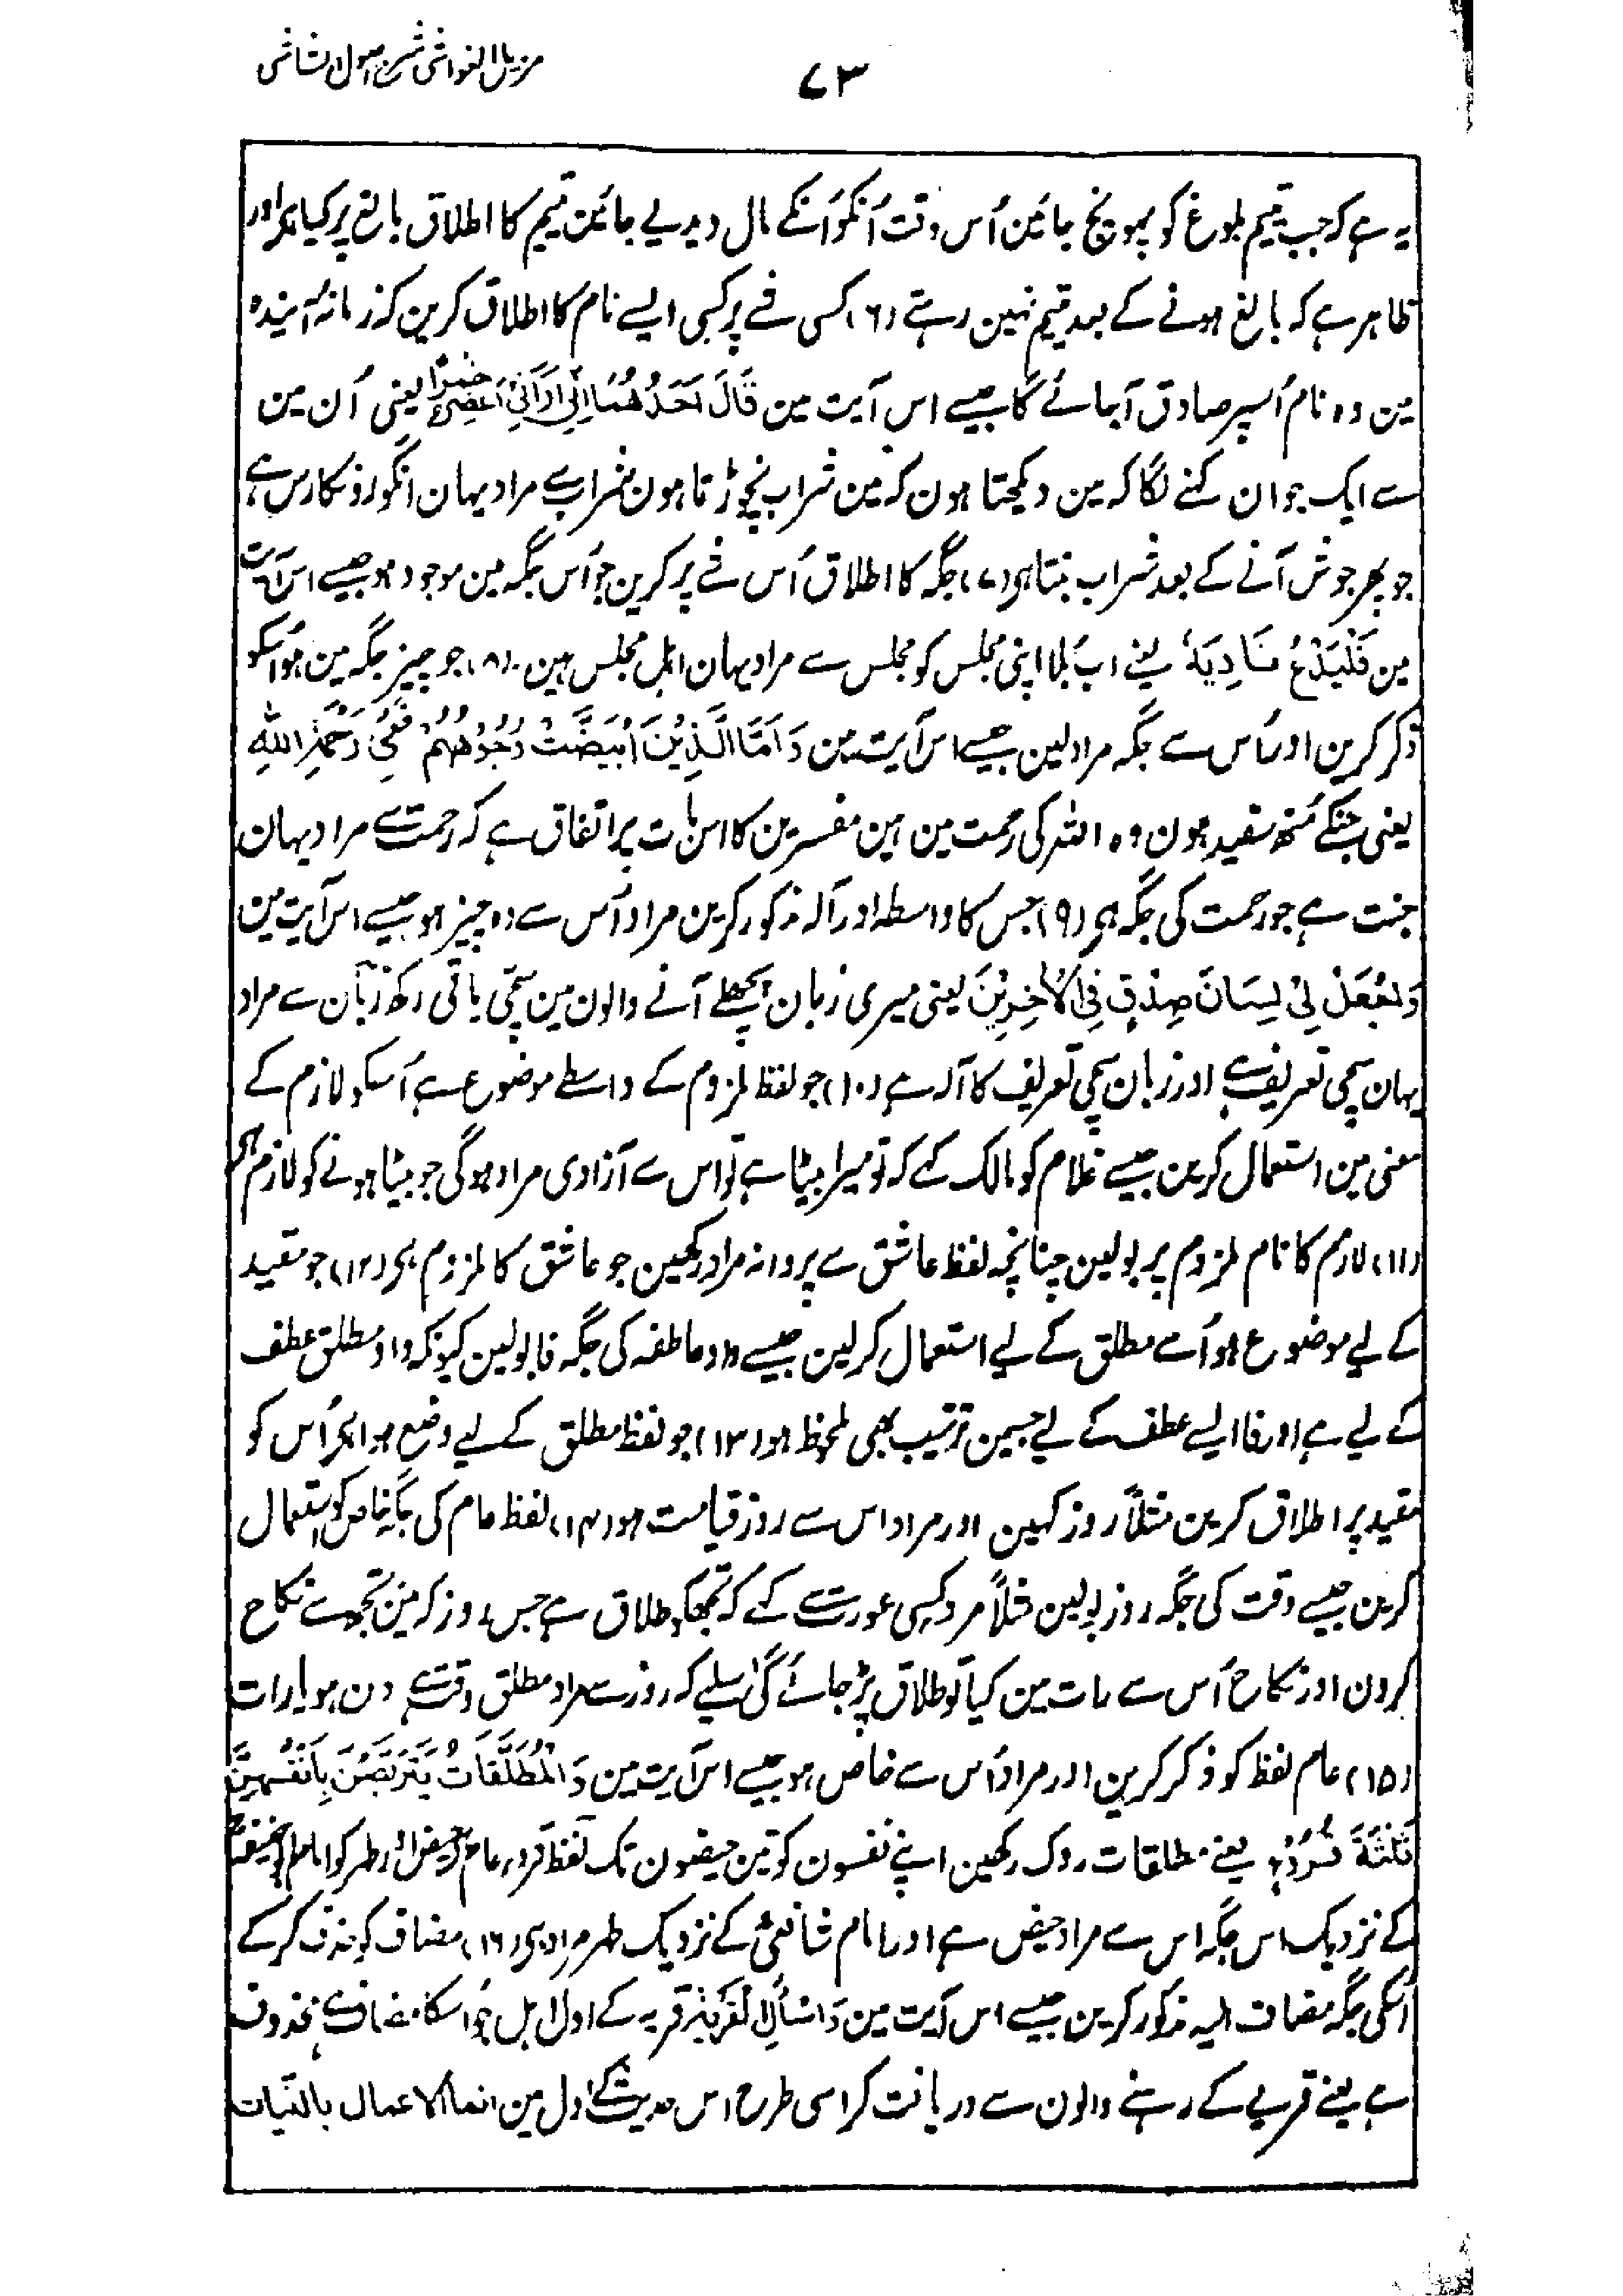 ۷۳
مزیل الغواشی شرح اصول الشاشی
یہ ہے کہ جب یتیم بلوغ کو پہونچ جائین اُس وقت اُنکو اُنکے مال دیدیے جائین یتیم کا اطلاق بالغ پر کیا ہی اور
ظاہر ہے کہ بالغ ہونے کے بعد یتیم نہین رہتے (۶) کسی شے پر کسی ایسے نام کا اطلاق کرین کہ زمانۂ آیندہ
مین وہ نام اُسپر صادق آجائے گا جیسے اس آیت مین قَالَ اَحَدُهُمَا اِنِّي اَرَانِيْ اَعْصِرُ خَمْرًا یعنی اُن مین
سے ایک جوان کہنے لگا کہ مین دیکھتا ہون کہ مین شراب نچوڑتا ہون شراب سے مراد یہان انگورونکا رس ہے
جو پھر جوش آنے کے بعد شراب بنتا ہی (۷) جگہ کا اطلاق اُس شے پر کرین جو اُس جگہ مین موجود ہو جیسے اس آیت
مین فَلْيَدْعُ نَادِيَهٗ یعنے اب بُلا اپنی مجلس کو مجلس سے مراد یہان اہل مجلس ہین۔ (۸) جو چیز جگہ مین ہو اُسکو
ذکر کرین اور اُس سے جگہ مراد لین جیسے اس آیت مین وَاَمَّا الَّذِيْنَ ابْيَضَّتْ وُجُوْهُهُمْ فَفِيْ رَحْمَةِ اللّٰهِ
یعنی جنکے مُنھ سفید ہون وہ اللہ کی رحمت مین ہین مفسرین کا اس بات پر اتفاق ہے کہ رحمت سے مراد یہان
جنت ہے جو رحمت کی جگہ ہی (۹) جس کا واسطہ اور آلہ مذکور کرین مراد اُس سے وہ چیز ہو جیسے اس آیت مین
وَاجْعَلْ لِّيْ لِسَانَ صِدْقٍ فِي الْاٰخِرِيْنَ یعنی میری زبان پچھلے آنے والون مین سچی باقی رکھ زبان سے مراد
یہان سچی تعریف ہے اور زبان سچی تعریف کا آلہ ہے (۱۰) جو لفظ ملزوم کے واسطے موضوع ہے اُسکو لازم کے
معنی مین استعمال کرین جیسے غلام کو مالک کہے کہ تو میرا بیٹا ہے تو اس سے آزادی مراد ہوگی جو بیٹا ہونے کو لازم ہی
(۱۱) لازم کا نام ملزوم پر بولین چنانچہ لفظ عاشق سے پروانہ مراد رکھین جو عاشق کا ملزوم ہی (۱۲) جو مقید
کے لیے موضوع ہو اُسے مطلق کے لیے استعمال کر لین جیسے واو عاطفہ کی جگہ فا بولین کیونکہ واو مطلق عطف
کے لیے ہے اور فا ایسے عطف کے لیے جسمین ترتیب بھی ملحوظ ہو (۱۳) جو لفظ مطلق کے لیے وضع ہوا ہی اُس کو
مقید پر اطلاق کرین مثلاً روز کہین اور مراد اس سے روز قیامت ہو (۱۴) لفظ عام کی جگہ خاص کو استعمال
کرین جیسے وقت کی جگہ روز بولین مثلاً مرد کسی عورت سے کہے کہ تجھکو طلاق ہے جس روز کہ مین تجھ سے نکاح
کرون اور نکاح اُس سے رات مین کیا تو طلاق پڑ جائے گی اسلیے کہ روز سے مراد مطلق وقت ہے دن ہو یا رات
(۱۵) عام لفظ کو ذکر کرین اور مراد اُس سے خاص ہو جیسے اس آیت مین وَالْمُطَلَّقَاتُ يَتَرَبَّصْنَ بِاَنْفُسِهِنَّ
ثَلٰثَةَ قُرُوْءٍ یعنے مطلقات روک رکھین اپنے نفسون کو تین حیضون تک لفظ قروء عام ہی حیض اور طہر کو امام ابو حنیفہؒ
کے نزدیک اس جگہ اس سے مراد حیض ہے اور امام شافعیؒ کے نزدیک طہر مراد ہی (۱۶) مضاف کو حذف کرکے
اُسکی جگہ مضاف الیہ مذکور کرین جیسے اس آیت مین وَاسْأَلِ الْقَرْيَةَ قریہ کے اول اہل جو اُسکا مضاف ہے محذوف
ہے یعنے قریے کے رہنے والون سے دریافت کر اسی طرح اس حدیث کے اول مین انما الاعمال بالنیات